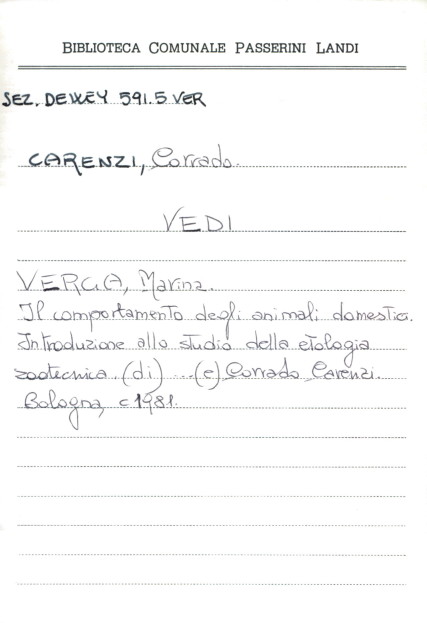 BIBLIOTECA COMUNALE PASSERINI LANDI
SEZ. DEWEY 591.5 VER
CARENZI, Corrado.
VEDI
VERGA, Marina.
Il comportamento degli animali domestici.
Introduzione allo studio della etologia
zootecnica (di) ... (e) Corrado Carenzi.
Bologna, c1981.